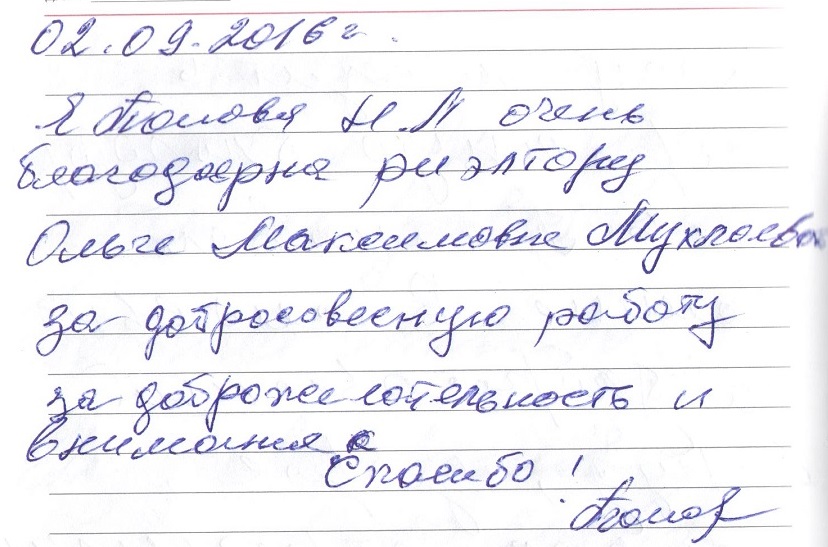 02.09.2016 г.
Я Н.Л очень
благодарна риэлтору
Ольге Максимовне
за добросовесную работу
за доброжелательность и
внимания
Спасибо!